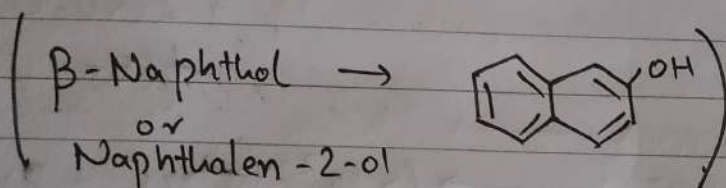 β-Naphthol → OH
or
Naphthalen-2-ol